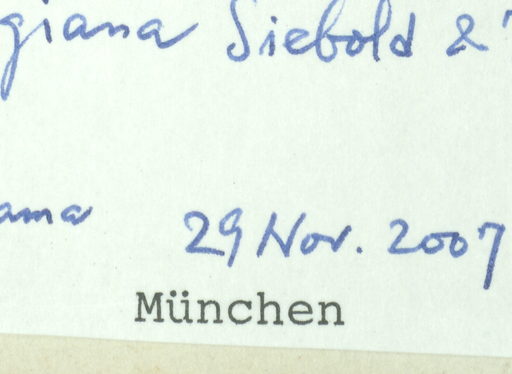 giana Siebold &
ama 29 Nov. 2007
München